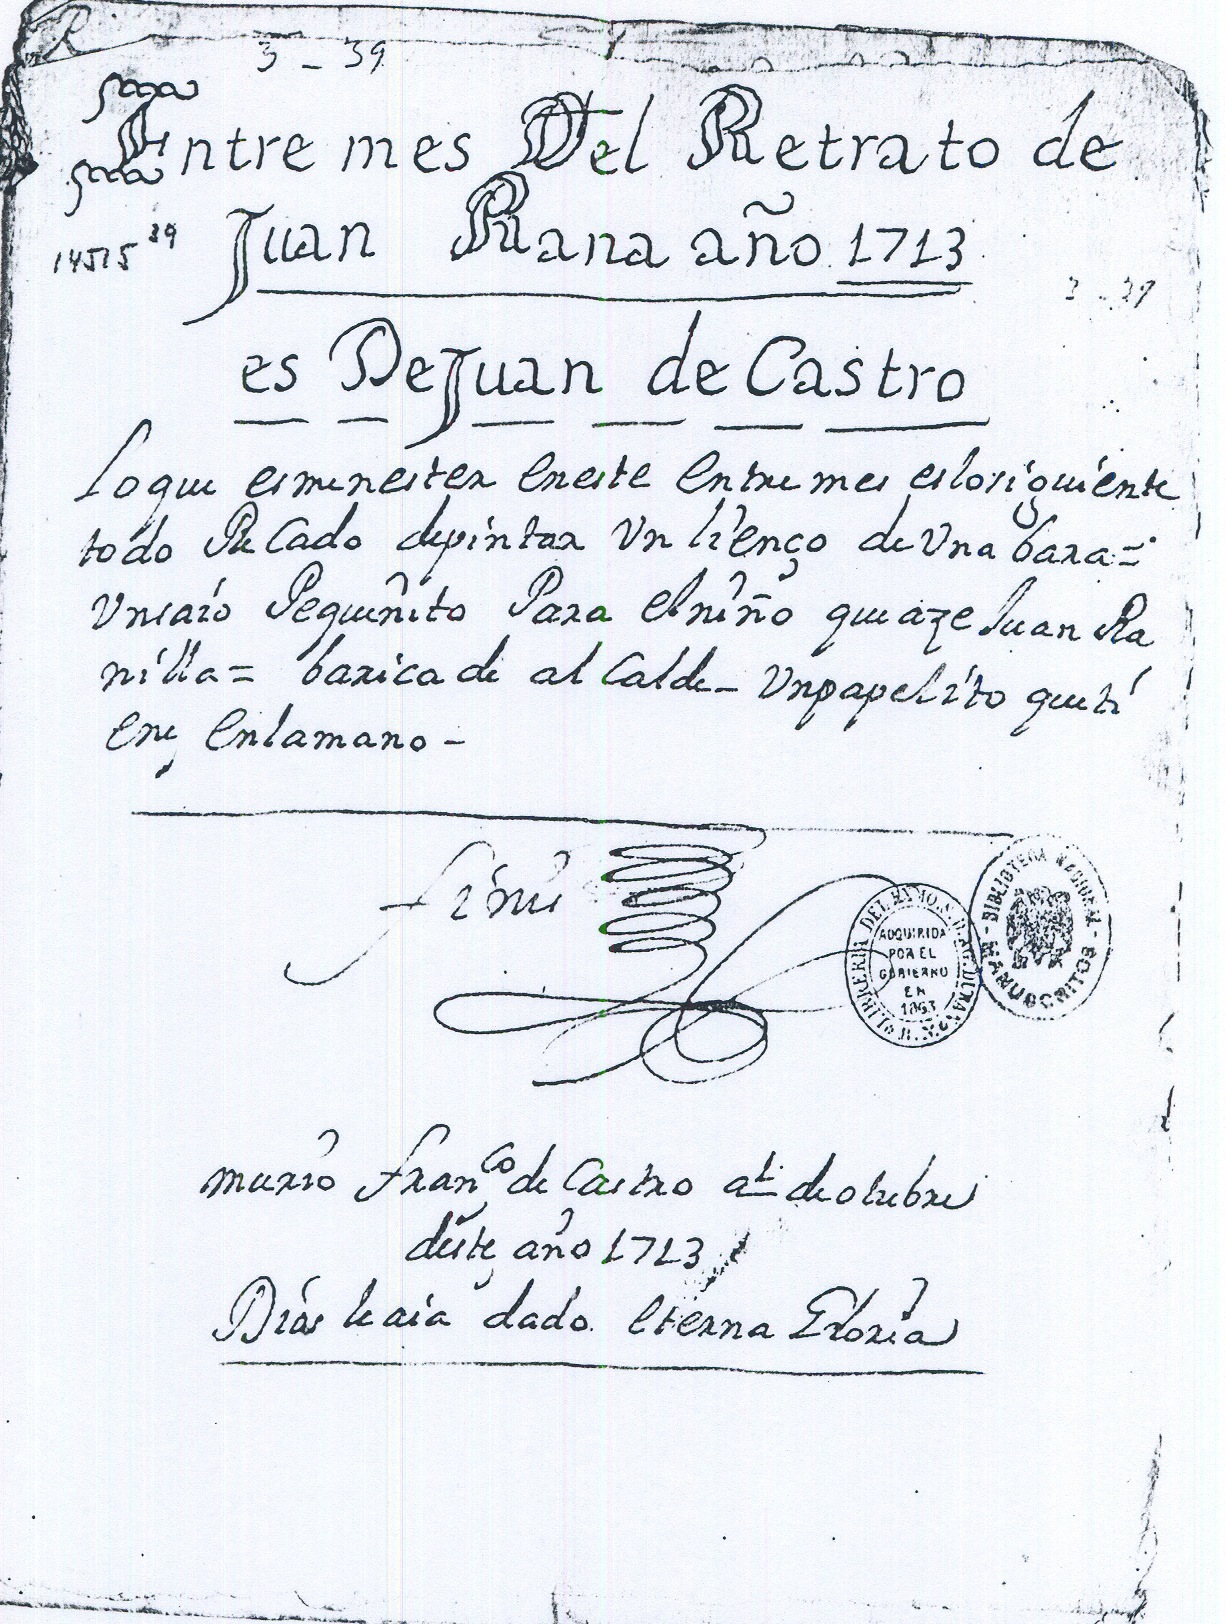 3 - 39
Entremes Del Retrato de
Juan Rana año 1713
14515 39
3 - 39
es De Juan de Castro
Lo que es menester en este entremes es lo siguiente
todo Recado de pintar Un lienço de Una bara =
Un saio Pequeñito Para el niño que aze Juan Ra
nilla = barica de alCalde - Un papelito que ti
ene en la mano -
finis
LIBRERIA DEL EXMO. S. D. AG. DURAN
ADQUIRIDA
POR EL
GOBIERNO
EN
1863
B. N.
BIBLIOTECA NACIONAL
MANUSCRITOS
murio Fran.co de Castro a 1 de otubre
deste año 1713
Dios le aia dado eterna Gloria